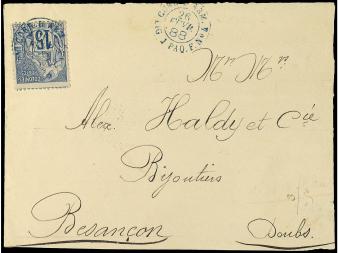 15
COLONIES
88
Mrs Mrs
Alex. Haldy et Cie
Bijoutiers
Besançon
Doubs.